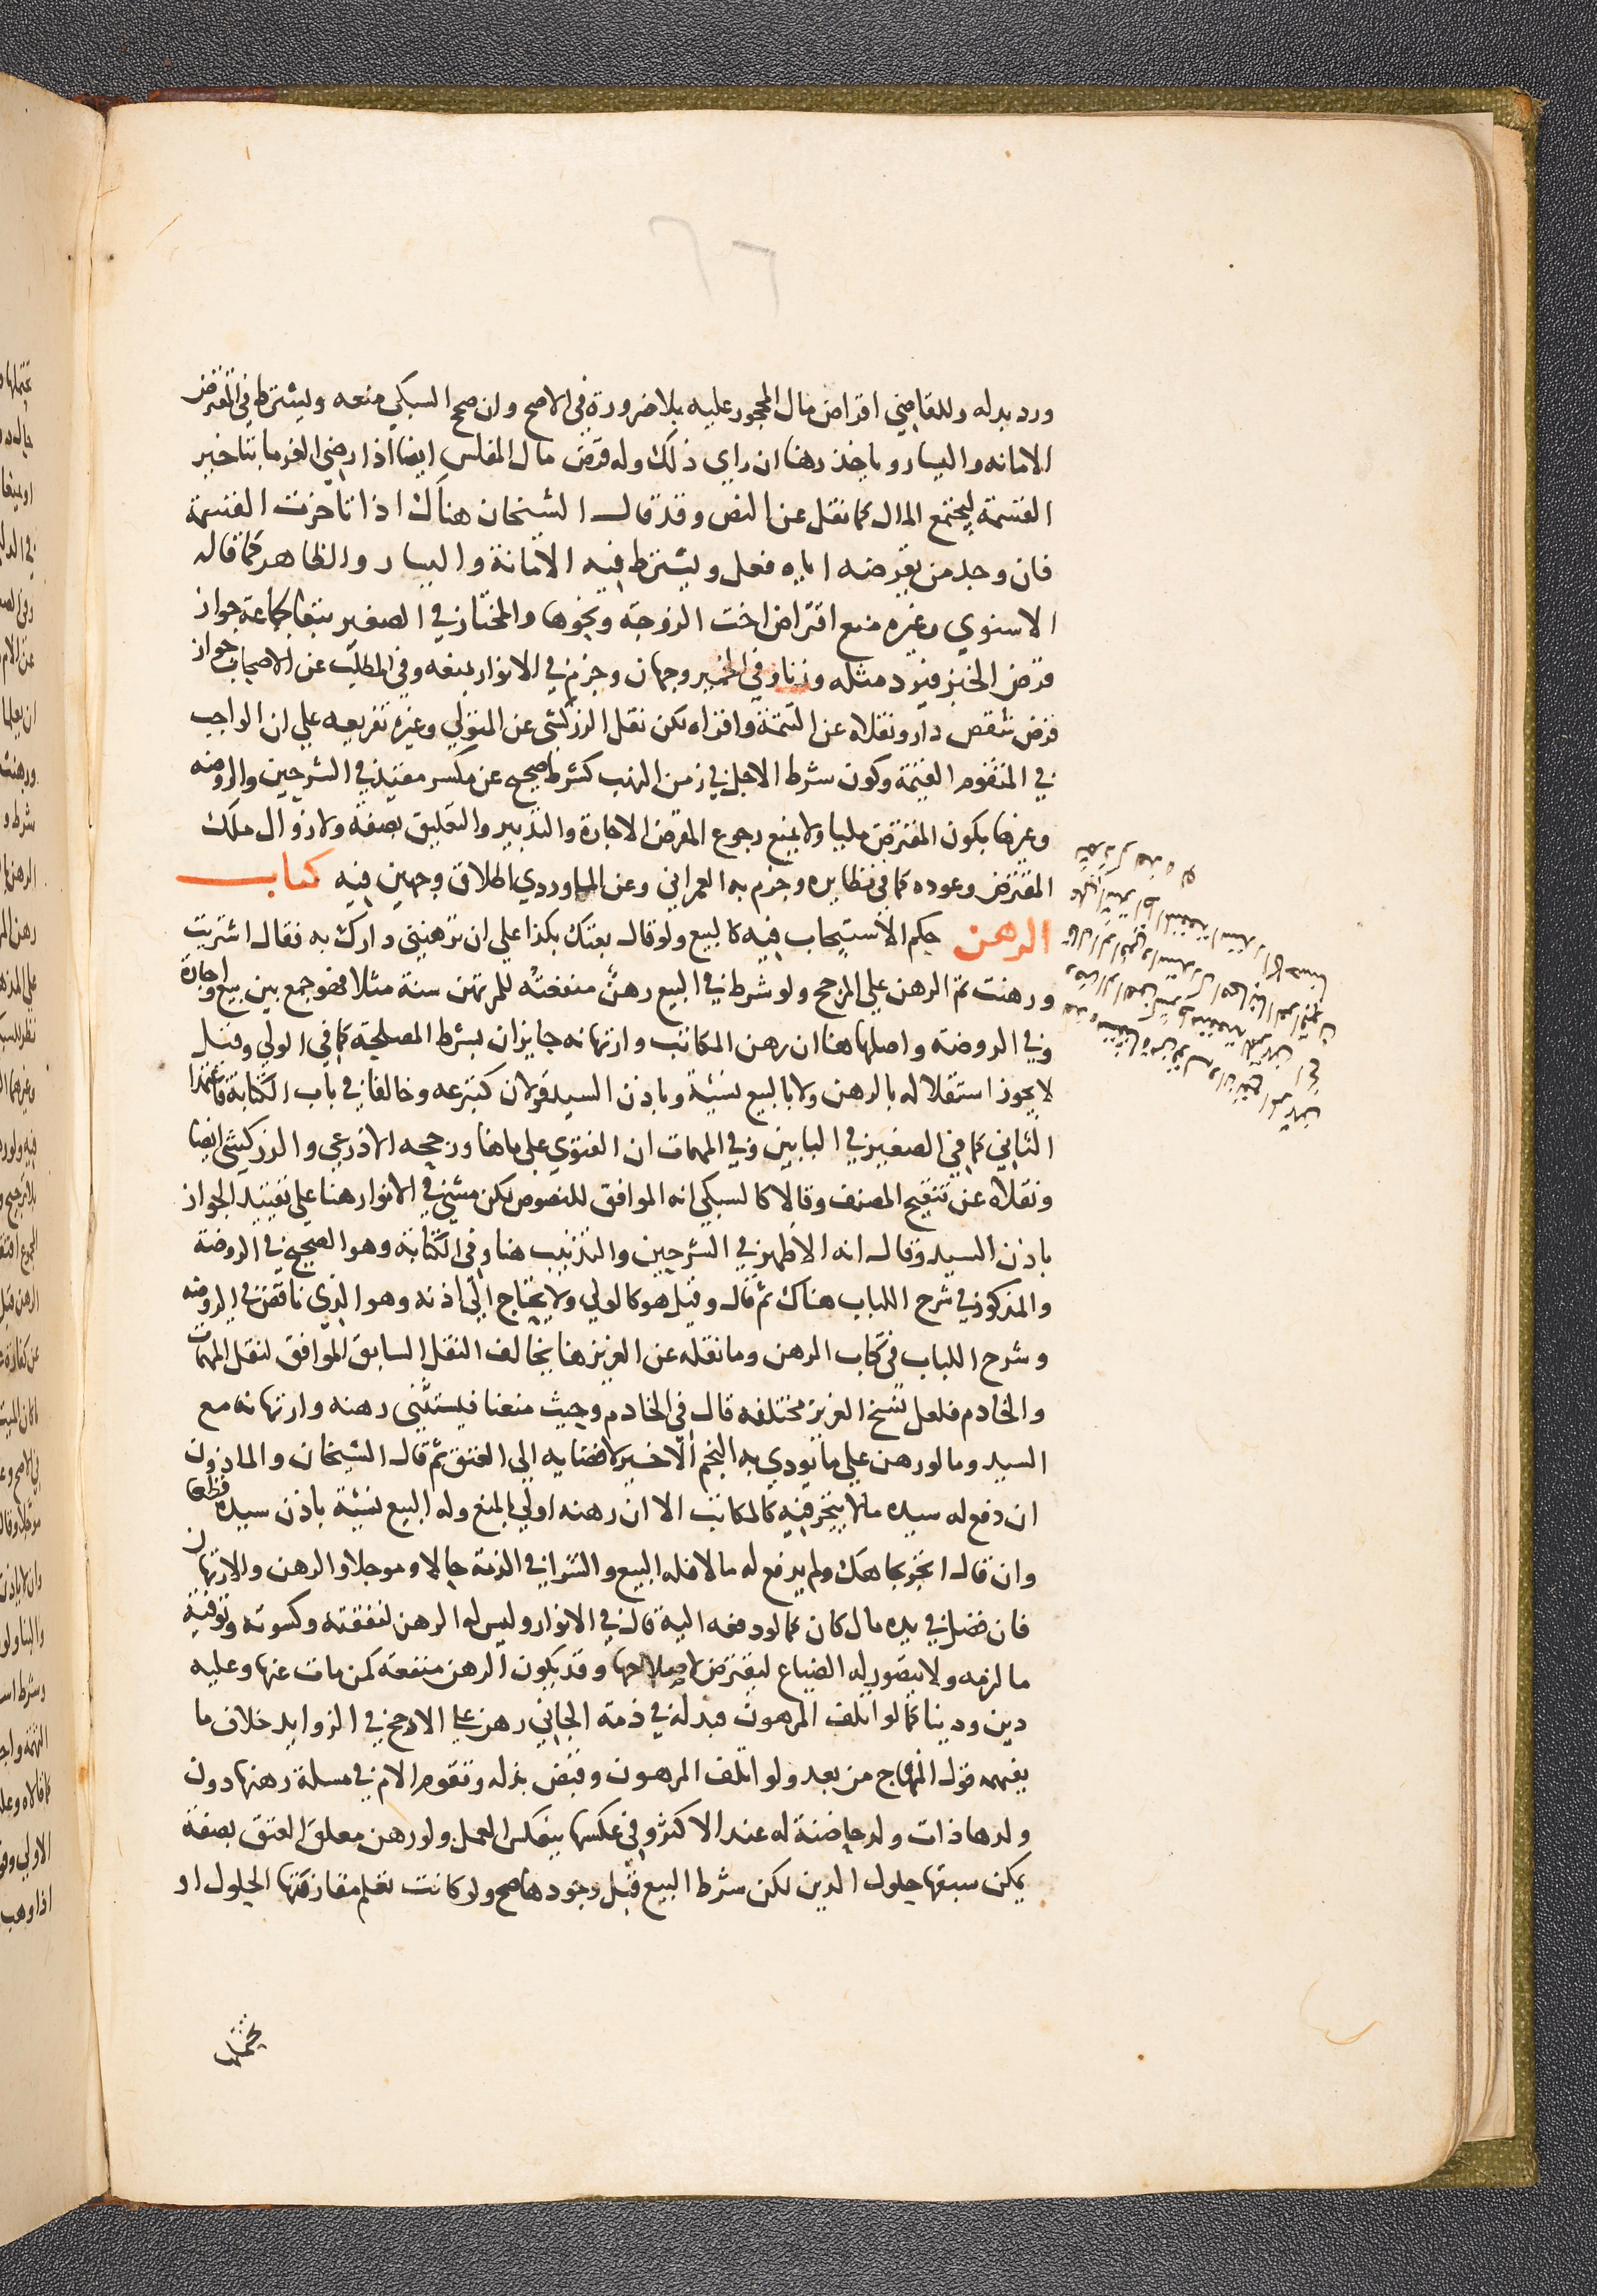 ٢٦
ورد بدله وللقاضي اقراض مال المحجور عليه بلا ضرورة في الاصح وان صحح السبكي منعه ويشترط في المقترض
الامانه واليسار وياخذ رهنا ان راي ذلك وله قرض مال المفلس ايضا اذا رضي الغرما بتاخير
القسمة ليجتمع المال كما نقل عن النص وقد قال الشيخان هناك اذا تاخرت القسمة
فان وجد من يقرضه اياه فعل ويشترط فيه الامانة واليسار والظاهر كما قاله
الاسنوي وغيره منع اقتراض اخت الزوجة ونحوها والمختار في الصغير تبعا لجماعة جواز
قرض الخبز فيرد مثله وزنا وفي الخمير وجهان وجزم في الانوار بمنعه وفي المطلب عن الاصحاب جواز
قرض شقص دار ونقلاه عن التتمة واقراه لكن نقل الزركشي عن المتولي وغيره تفريعه علي ان الواجب
في المتقوم القيمة وكون شرط الاجل في زمن النهب كشرط صحيح عن مكسر مقيد في الشرحين والروضه
وغيرها بكون المقترض مليا ولا يمنع رجوع المقرض الاجارة والتدبير والتعليق بصفة ولا زوال ملك
المقترض وعوده كما في نظايره وجزم به العمراني وعن الماوردي اطلاق وجهين فيه كتاب
الرهن حكم الاستيجاب فيه كالبيع ولو قال بعتك بكذا علي ان ترهنني دارك به فقال اشتريت
ورهنت تم الرهن علي المرجح ولو شرط في البيع رهن منفعته للمرتهن سنة مثلا فهو جمع بين بيع واجارة
وفي الروضة واصلها هنا ان رهن المكاتب وارتهانه جايزان بشرط المصلحة كما في الولي وقيل
لا يجوز استقلاله بالرهن ولا بالبيع نسيئة وباذن السيد قولان كتبرعه وخالفا في باب الكتابة فاعتمدا
الثاني كما في الصغير في البابين وفي المهمات ان الفتوي علي ما هنا ورجحه الاذرعي والزركشي ايضا
ونقلاه عن تنقيح المصنف وقالا كالسبكي انه الموافق للنصوص لكن مشي في الانوار هنا علي تقييد الجواز
باذن السيد وقال انه الاظهر في الشرحين والتذنيب هنا وفي الكتابة وهو الصحيح في الروضة
والمذكور في شرح اللباب هناك ثم قال وقيل هو كالولي ولا يحتاج الي اذنه وهو الذي ناقض في الروضه
وشرح اللباب في كتاب الرهن وما نقله عن العزيز هنا يخالف النقل السابق الموافق لنقل المهمات
والخادم فلعل نسخ العزيز مختلفه قال في الخادم وحيث منعنا فيستثني رهنه وارتهانه مع
السيد وما لو رهن علي ما يودي به النجم الاخير لافضايه الي العتق ثم قال الشيخان والماذون
ان دفع له سيده مالا يتجر فيه كالمكاتب الا ان رهنه اولي بالمنع وله البيع نسيئة باذن سيده قطعا
وان قال اتجر بجاهك ولم يدفع له مالا فله البيع والشرا في الذمة حالا وموجلا والرهن والارتهان
فان فضل في يده مال كان كما لو دفعه اليه قال في الانوار وليس له الرهن لنفقته وكسوته وتوفية
ما لزمه ولا يتصور له الضياع ليقترض لاصلاحها وقد يكون الرهن منفعة كمن مات عنها وعليه
دين ودينا كما لو اتلف المرهون فبدله في ذمة الجاني رهن علي الارجح في الزوايد خلاف ما
يفهمه قول المنهاج من بعد ولو اتلف المرهون وقبض بدله وتقوم الام في مسلة رهنها دون
ولدها ذات ولد حاضنة له عند الاكثر وفي عكسها ينعكس العمل ولو رهن معلق العتق بصفة
يمكن سبقها حلول الدين لكن شرط البيع قبل وجودها صح ولو كانت تعلم مقارنتها الحلول او
يحتمل